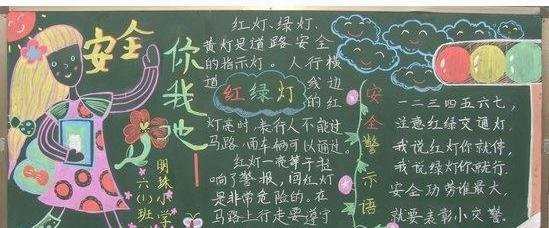 安全
你我他
明珠小学
六(1)班
红灯、绿灯、
黄灯是道路安全
的指示灯。人行横
道 线边
的红
红绿灯
灯亮时,表行人不能过
马路,而车辆可以通过。
红灯一亮等于拉
响了警报,闯红灯
是非常危险的。在
马路上行走要遵守
安全警示语
一二三四五六七,
注意红绿交通灯
我说红灯你就停
我说绿灯你就行.
安全功劳谁最大,
就要表彰小交警.